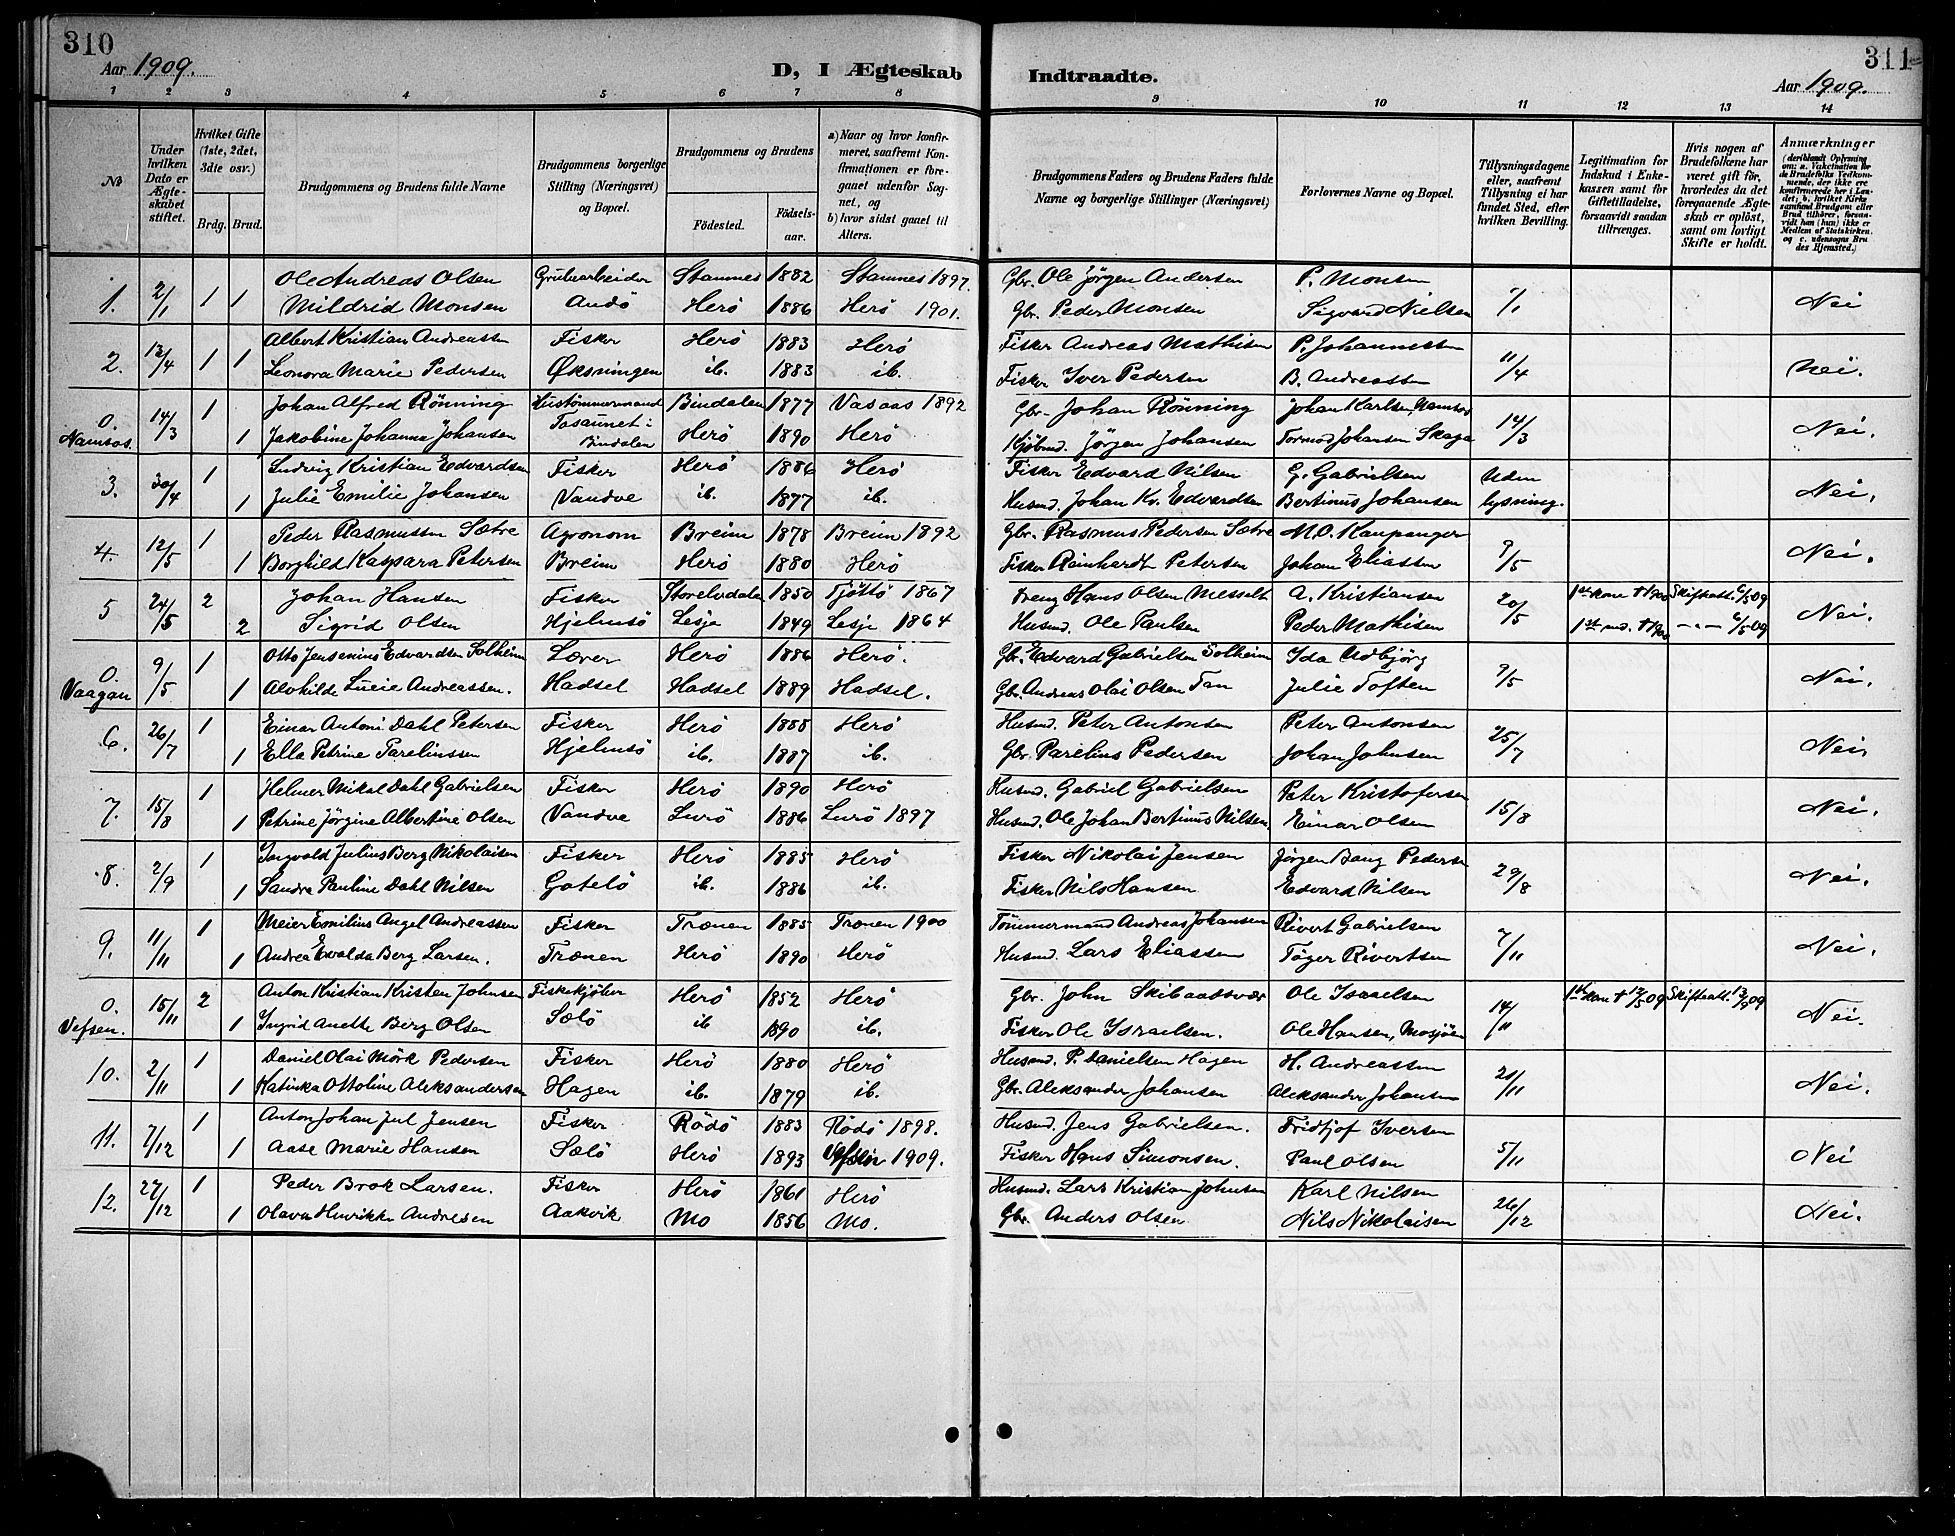 310
Aar 1909.
D, I Ægteskab
Indtraadte.
311
Aar 1909.
1 2 3 4 5 6 7 8 9 10 11 12 13 14
No
Under hvilken Dato er Ægteskabet stiftet.
Hvilket Gifte (1ste, 2det, 3die osv.)
Brdg. Brud.
Brudgommens og Brudens fulde Navne
Brudgommens borgerlige Stilling (Næringsvei) og Bopæl.
Brudgommens og Brudens
Födested.
Födselsaar.
a) Naar og hvor konfirmeret, saafremt Konfirmationen er foregaaet udenfor Sognet, og
b) hvor sidst gaaet til Alters.
Brudgommens Faders og Brudens Faders fulde Navne og borgerlige Stillinger (Næringsvei)
Forlovernes Navne og Bopæl.
Tillysningsdagene eller, saafremt Tillysning ei har fundet Sted, efter hvilken Bevilling.
Legitimation for Indskud i Enkekassen samt for Giftetilladelse, forsaavidt saadan tiltrænges.
Hvis nogen af Brudefolkene har været gift før, hvorledes da det foregaaende Ægteskab er oplöst, samt om lovligt Skifte er holdt.
Anmærkninger
(deriblandt Oplysning om: a. Vakcination for de Brudefolks Vedkommende, der ikke ere konfirmerede her i Landet; b. hvilket Kirkesamfund Brudgom eller Brud tilhører, forsaavidt han (hun) ikke er Medlem af Statskirken, og c. udensogns Brudes Hjemsted.)
1. 2/1 1 1 Ole Andreas Olsen Grubearbeider Stamnes 1882 Stamnes 1897. Gbr. Ole Jørgen Andersen P. Monsen 1/1 Nei
Mildrid Monsen Andö Herö 1886 Herö 1901. Gbr. Peder Monsen Sigvard Nielsen
2. 12/4 1 1 Albert Kristian Andreassen Fisker Herö 1883 Herö Fisker Andreas Mathisen P. Johannessen 11/4 Nei.
Leonora Marie Pedersen Øksningen ib. 1883 ib. Fisker Iver Pedersen B. Andreassen
0. Namsos. 14/3 1 Johan Alfred Rönning Hustömmermand Bindalen 1877 Vasaas 1892 Gbr. Johan Rönning Johan Karlsen, Namsos 14/3 Nei.
1 Jakobine Johanna Johansen Tosaunet i Bindalen Herö 1890 Herö Kjöbmd. Jörgen Johansen Tormod Johansen Skaga
3. 20/4 1 Ludvig Kristian Edvardsen Fisker Herö 1886 Herö Fisker Edvard Nilsen G. Gabrielsen Uden Nei.
1 Julie Emilie Johansen Vandve ib. 1877 ib. Husmd. Johan Kr. Edvardsen Bertinus Johansen lysning.
4. 12/5 1 Peder Rasmussen Sætre Agronom Breim 1878 Breim 1892 Gbr. Rasmus Pedersen Sætre M.O. Kaupanger 9/5 Nei.
1 Borghild Kaspara Petersen Breim Herö 1880 Herö Fisker Reinhardt Petersen Johan Eliassen
5 24/5 2 Johan Hansen Fisker Storelvdalen 1850 Tjöttö 1867 Hans Olsen Messelt A. Kristiansen 20/5 1ste kone † 1900 Skifteatt. 6/5 09 Nei.
2 Sigrid Olsen Hjelmsö Lesje 1849 Lesje 1864 Husmd. Ole Paulsen Peder Mathisen 1ste md. † 1900 -"- 6/5 09
0. Vaagan 9/5 1 Otto Jensenius Edvardsen Solheim Lærer Herö 1886 Herö. Gbr. Edvard Gabrielsen Solheim Ida Udbjörg 9/5 Nei.
1 Alvhilde Lucie Andreassen. Hadsel Hadsel 1889 Hadsel. Gbr. Andreas Olai Olsen Tan Julie Toften
6. 26/7 1 Einar Antoni Dahl Petersen Fisker Herö 1888 Herö Husmd. Peter Antonsen Peter Antonsen 25/7 Nei,
1 Ella Petrine Parelinssen Hjelmsö ib. 1887 ib. Gbr. Parelius Pedersen Johan Johnsen
7. 15/8 1 Helmer Mikal Dahl Gabrielsen Fisker Herö 1890 Herö Husmd. Gabriel Gabrielsen Peter Kristofersen 15/8 Nei.
1 Petrine Jörgine Albertine Olsen Vandve Lurö 1886 Lurö 1897 Husmd. Ole Johan Bertinus Nilsen. Einar Olsen
8. 2/9 1 Ingvald Julius Berg Nikolaisen Fisker Herö 1885 Herö Fisker Nikolai Jensen Jörgen Bang Pedersen 29/8 Nei.
1 Sandra Pauline Dahl Nilsen Gotelö ib. 1886 ib. Fisker Nils Hansen Edvard Nilsen
9. 11/11 1 Meier Emilius Angel Andreassen Fisker Trænen 1885 Trænen 1900 Tömmermand Andreas Johansen Rivert Gabrielsen 7/11 Nei.
1 Andrea Evalda Berg Larsen. Trænen Herö 1890 Herö Husmd. Lars Eliassen Töger Rivertsen
0. Vefsen. 15/11 2 Anton Kristian Kristen Johnsen Fiskekjöber Herö 1852 Herö Gbr. John Skibaasvær Ole Israelsen 14/11 1ste kone † 12/5 09 Skifteatt. 13/9 09 Nei.
1 Ingrid Anette Berg Olsen Sælö ib 1890 ib. Fisker Ole Israelsen. Ole Hansen, Mosjöen
10. 2/11 1 Daniel Olai Mörk Pedersen Fisker Herö 1880 Herö Husmd. P. Danielsen Hagen H. Andreassen 21/11 Nei.
1 Katinka Ottoline Aleksandersen Hagen ib. 1879 ib. Gbr. Aleksander Johansen Aleksander Johansen
11. 7/12 1 Anton Johan Jul Jensen Fisker Rödö 1883 Rödö 1898. Husmd. Jens Gabrielsen. Fridtjof Iversen 5/11 Nei
1 Aase Marie Hansen Sælö Herö 1893 Vefsen 1909. Fisker Hans Simonsen. Paul Olsen
12. 27/12 1 Peder Brok Larsen. Fisker Herö 1861 Herö Husmd. Lars Kristian Johnsen Karl Nilsen 26/12 Nei.
1 Olava Henrikke Andresen Aakvik Mo 1856 Mo. Gbr. Anders Olsen Nils Nikolaisen